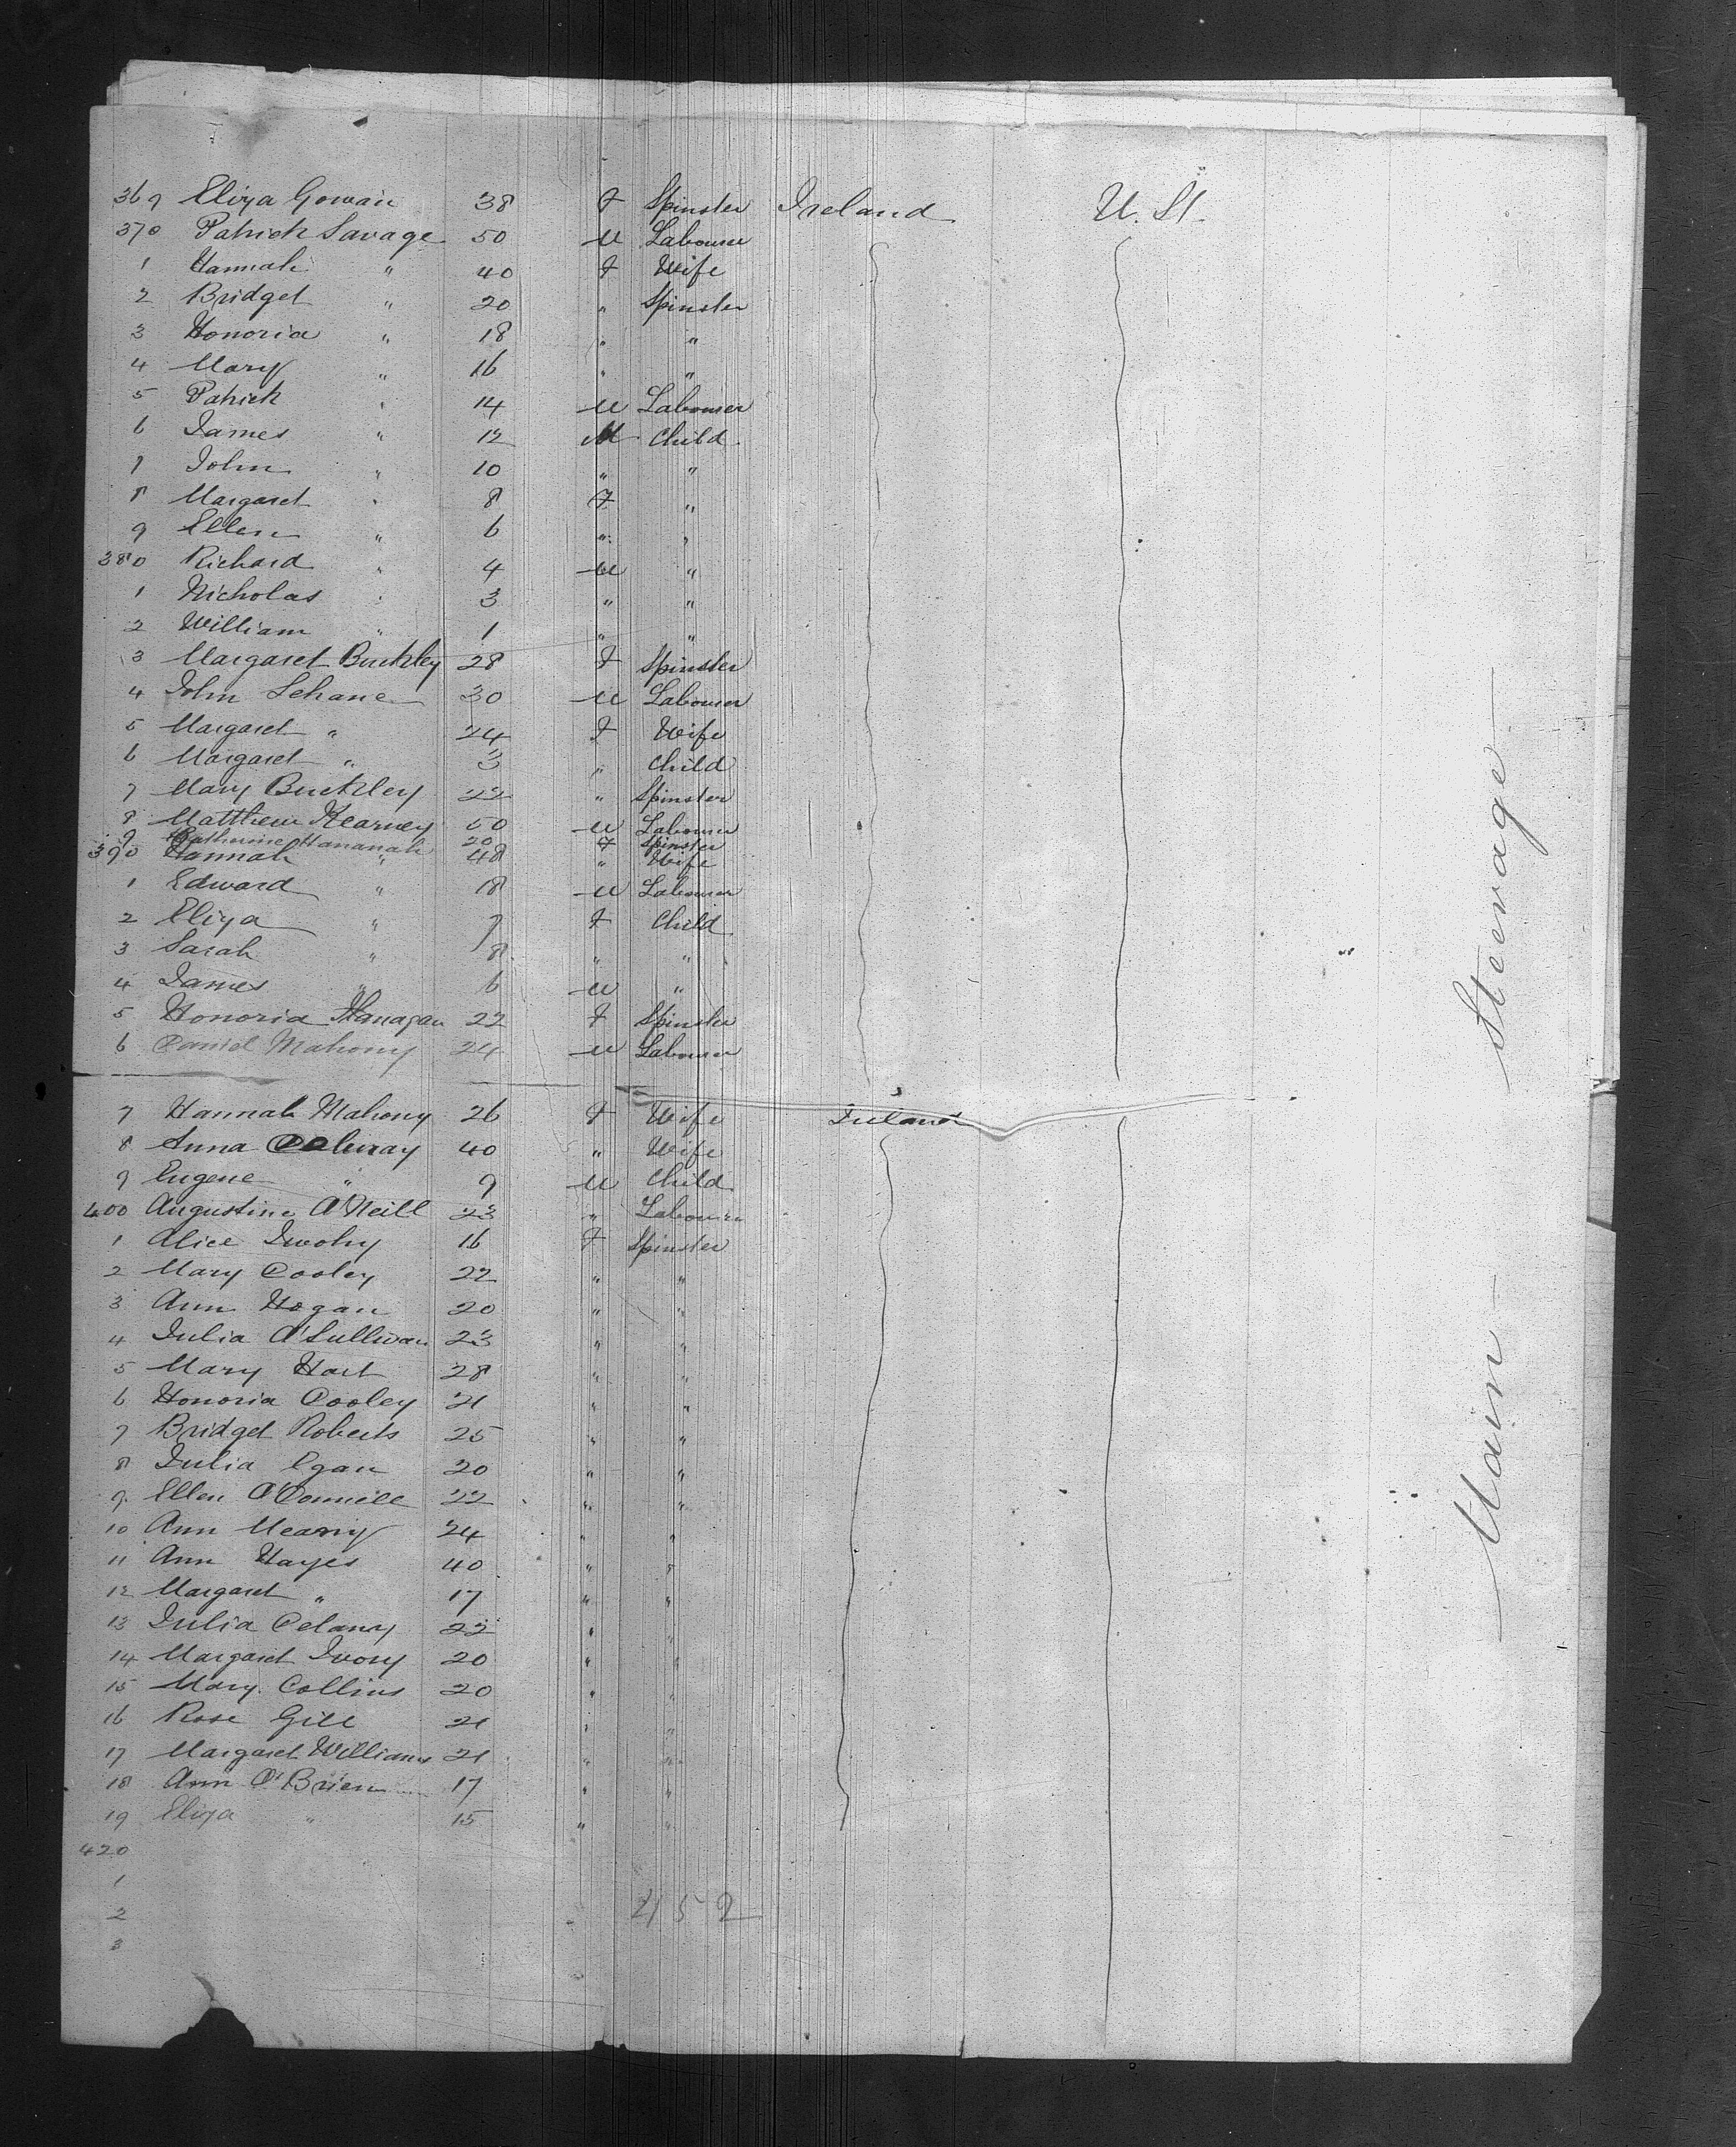 369 Eliza Gowan 38 F Spinster Ireland U. St.
370 Patrick Savage 50 M Labourer
1 Hannah " 40 F Wife
2 Bridget " 20 " Spinster
3 Honoria " 18 " "
4 Mary " 16 " "
5 Patrick " 14 M Labourer
6 James " 12 M Child
7 John " 10 " "
8 Margaret " 8 F "
9 Ellen " 6 " "
380 Richard " 4 M "
1 Nicholas " 3 " "
2 William " 1 " "
3 Margaret Buckley 28 F Spinster
4 John Lehane 30 M Labourer
5 Margaret " 24 F Wife
6 Margaret " 3 " Child
7 Mary Buckley 22 " Spinster
8 Matthew Kearney 50 M Labourer
9 Catherine Hananah 20 F Spinster
390 Hannah " 48 " Wife
1 Edward " 18 M Labourer
2 Eliza " 7 F Child
3 Sarah " 8 " "
4 James " 6 M "
5 Honoria Flanagan 22 F Spinster
6 Daniel Mahony 24 M Labourer
7 Hannah Mahony 26 F Wife Ireland
8 Anna 40 " Wife
9 Eugene " 9 M Child
400 Augustine O'Neill 23 " Labourer
1 Alice 16 F Spinster
2 Mary Cooley 22 " "
3 Ann Hogan 20 " "
4 Julia O'Sullivan 23 " "
5 Mary Hart 28 " "
6 Honoria Cooley 21 " "
7 Bridget Roberts 25 " "
8 Julia Egan 20 " "
9 Ellen O'Donnell 22 " "
10 Ann Meany 24 " "
11 Ann Hayes 40 " "
12 Margaret " 17 " "
13 Julia Delany 22 " "
14 Margaret Ivory 20 " "
15 Mary Collins 20 " "
16 Rose Gill 21 " "
17 Margaret Williams 21 " "
18 Ann O'Brien 17 " "
19 Eliza " 15 " "
420
1
2 452
3
Main Steerage